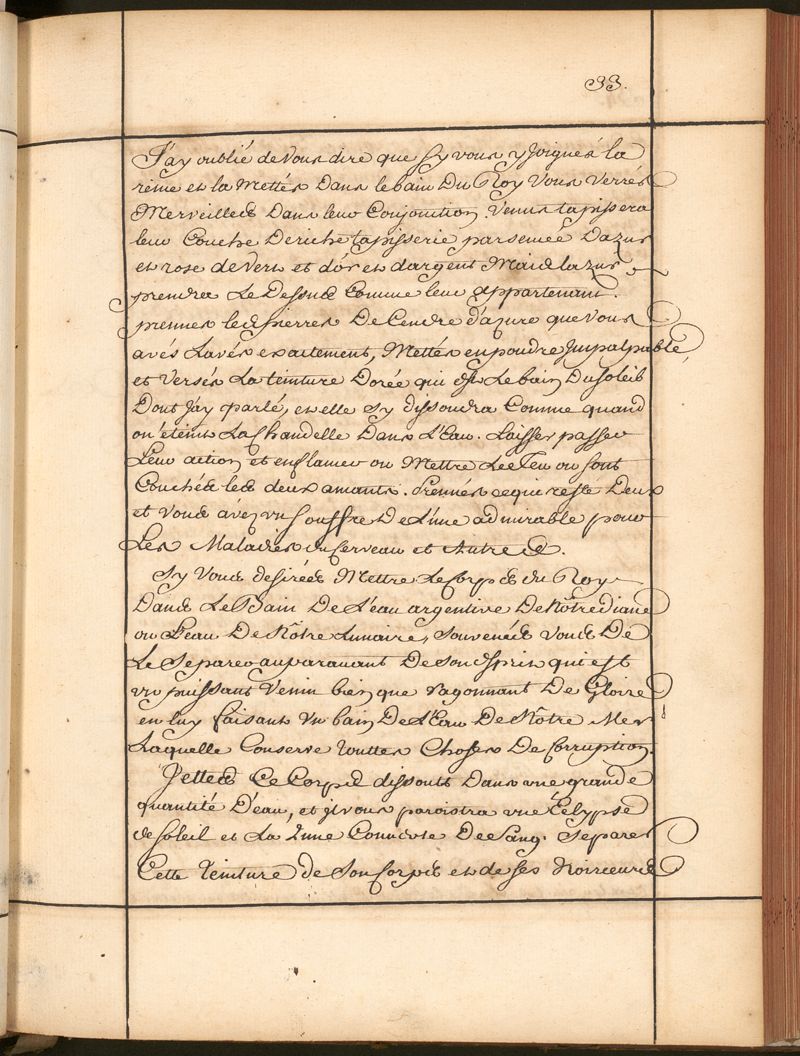 33.
J'ay oublié de vous dire que sy vous y joignés la
reine et la Mettés Dans le bain Du Roy Vous Verrés
Merveilles Dans leur Conjonction. Venus tapissera
leur Couche De riche tapisserie parsemée Dazur
et rose de Vert et d'or et dargent Mais lazur
prendra Le Dessus Comme leur appartenant.
prennes les pierres De Cendre d'azure que Vous
avés Lavés exactement, Mettés en poudre Jmpalpable,
et Versés La teinture Dorée qui est Le bain Du Soleil
Dont J'ay parlé, et elle sy dissoudra Comme quand
on éteint La Chandelle Dans L'Eau. Laisser passer
Leur action et enflamer ou Mettre Le feu ou sont
Couchés les deux amants. Prennés ce qui reste Deux
et Vous avez un souffre De L'une admirable pour
Les Maladies du Cerveau et Autres.
Sy Vous desirées Mettre Le Corps du Roy
Dans Le Bain De L'eau argentive De Nôtre diane
ou L'eau De Nôtre Lunaire, souvenés Vous De
Le Separer auparauant De son esprit qui est
un puissant Venin bien que rayonnant De Gloire
en luy faisant Un bain De L'Eau De Nôtre Mer
Laquelle Conserve toutes Choses De Corruption.
Jettes Ce Corps dissouts Dans une grande
quantité D'eau, et il vous paroistra une Eclypse
de soleil et La Lune Couverte De Sang. Separes
Cette Teinture de Son Corps et de ses Noirceurs